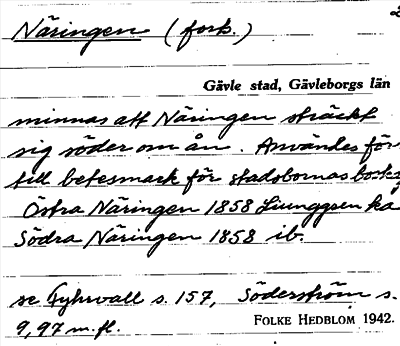 Näringen (forts.)
Gävle stad, Gävleborgs län
minnas att Näringen sträckt
sig söder om ån. Användes för
till betesmark för stadsbornas
Östra Näringen 1858 Ljunggren ka
Södra Näringen 1858 ib.
se Fyhrvall s. 157, Söderström s.
9, 97 m. fl.
FOLKE HEDBLOM 1942.